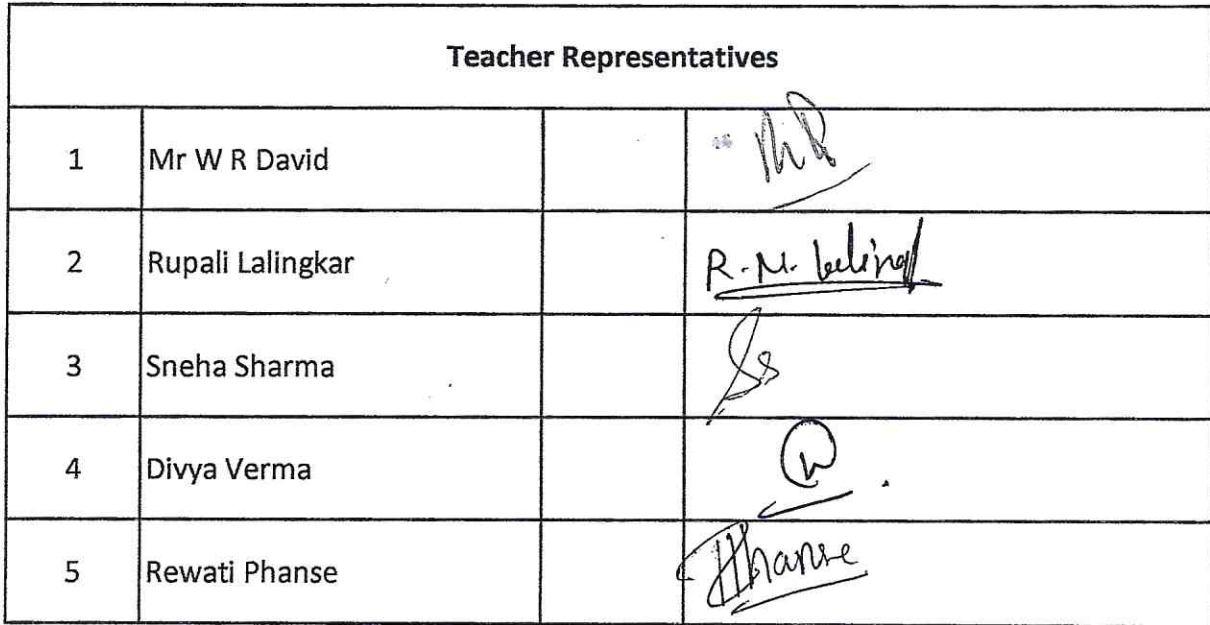 Teacher Representatives
1 Mr W R David
2 Rupali Lalingkar R.M.
3 Sneha Sharma Ss
4 Divya Verma
5 Rewati Phanse Phanse